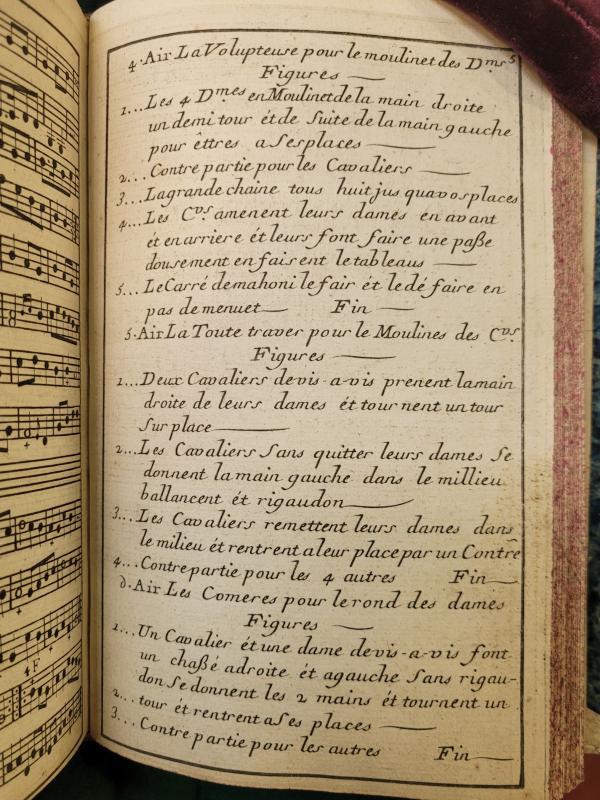 4. Air La Volupteuse pour le moulinet des Dmes
Figures
1... Les 4 Dmes en Moulinet de la main droite
un demi tour ét de Suite de la main gauche
pour êttres a Ses places
2... Contre partie pour les Cavaliers
3... La grande chaine tous huit jus qua vos places
4... Les Cvrs amenent leurs dames en avant
ét en arriere ét leurs font faire une paße
dousement en faisent le tableaus
5... Le Carré de mahoni le fair ét le dé faire en
pas de menuet Fin
5. Air La Toute traver pour le Moulines des Cvrs
Figures
1... Deux Cavaliers de vis-a-vis prenent la main
droite de leurs dames ét tour nent un tour
Sur place
2... Les Cavaliers Sans quitter leurs dames Se
donnent la main gauche dans le millieu
ballancent ét rigaudon
3... Les Cavaliers remettent leurs dames dans
le milieu ét rentrent a leur place par un Contre
4... Contre partie pour les 4 autres Fin
d. Air Les Comeres pour le rond des dames
Figures
1... Un Cavalier ét une dame de vis-a-vis font
un chaßé adroite ét agauche Sans rigau-
don Se donnent les 2 mains ét tournent un
2... tour ét rentrent a Ses places
3... Contre partie pour les autres Fin
4 F